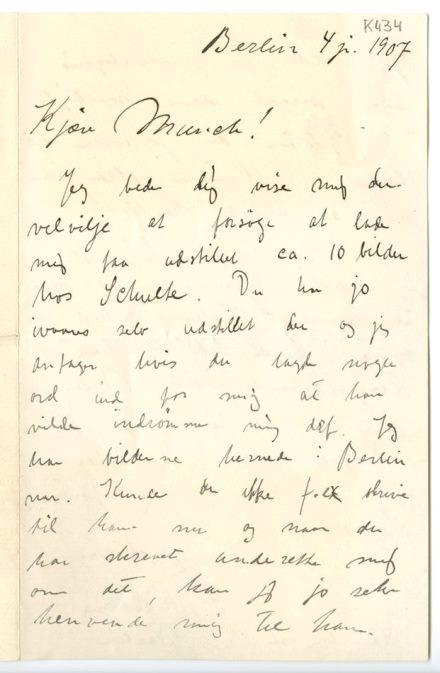 K434
Berlin 4 j. 1907
Kjære Munch!
Jeg beder dig vise mig den
velvilje at forsøge at lade
mig faa udstillet ca. 10 bilder
hos Schulte. Du har jo
ivaares selv udstillet der og jeg
antager hvis du lagde nogle
ord ind for mig at han
vilde indrømme mig det. Jeg
har bilderne hernede i Berlin
nu. Kunde du ikke f.ex skrive
til ham nu og naar du
har skrevet underrette mig
om det, kan jeg jo selv
henvende mig til ham.